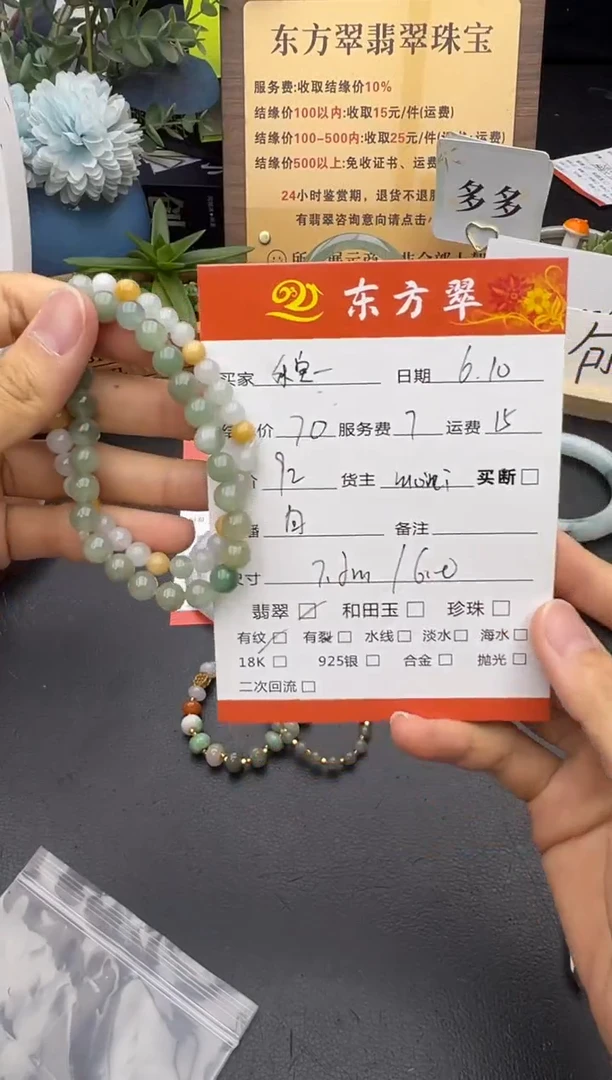 东方翠翡翠珠宝
服务费:收取结缘价10%
结缘价100以内:收取15元/件(运费)
结缘价100-500内:收取25元/件(运费)
结缘价500以上:免收证书、运费
24小时鉴赏期，退货不退
有翡翠咨询意向请点击
多多
东方翠
买家 日期 6.10
价 70 服务费 7 运费 15
92 货主 买断
备注
寸 /6.0
翡翠 和田玉 珍珠
有纹 有裂 水线 淡水 海水
18K 925银 合金 抛光
二次回流